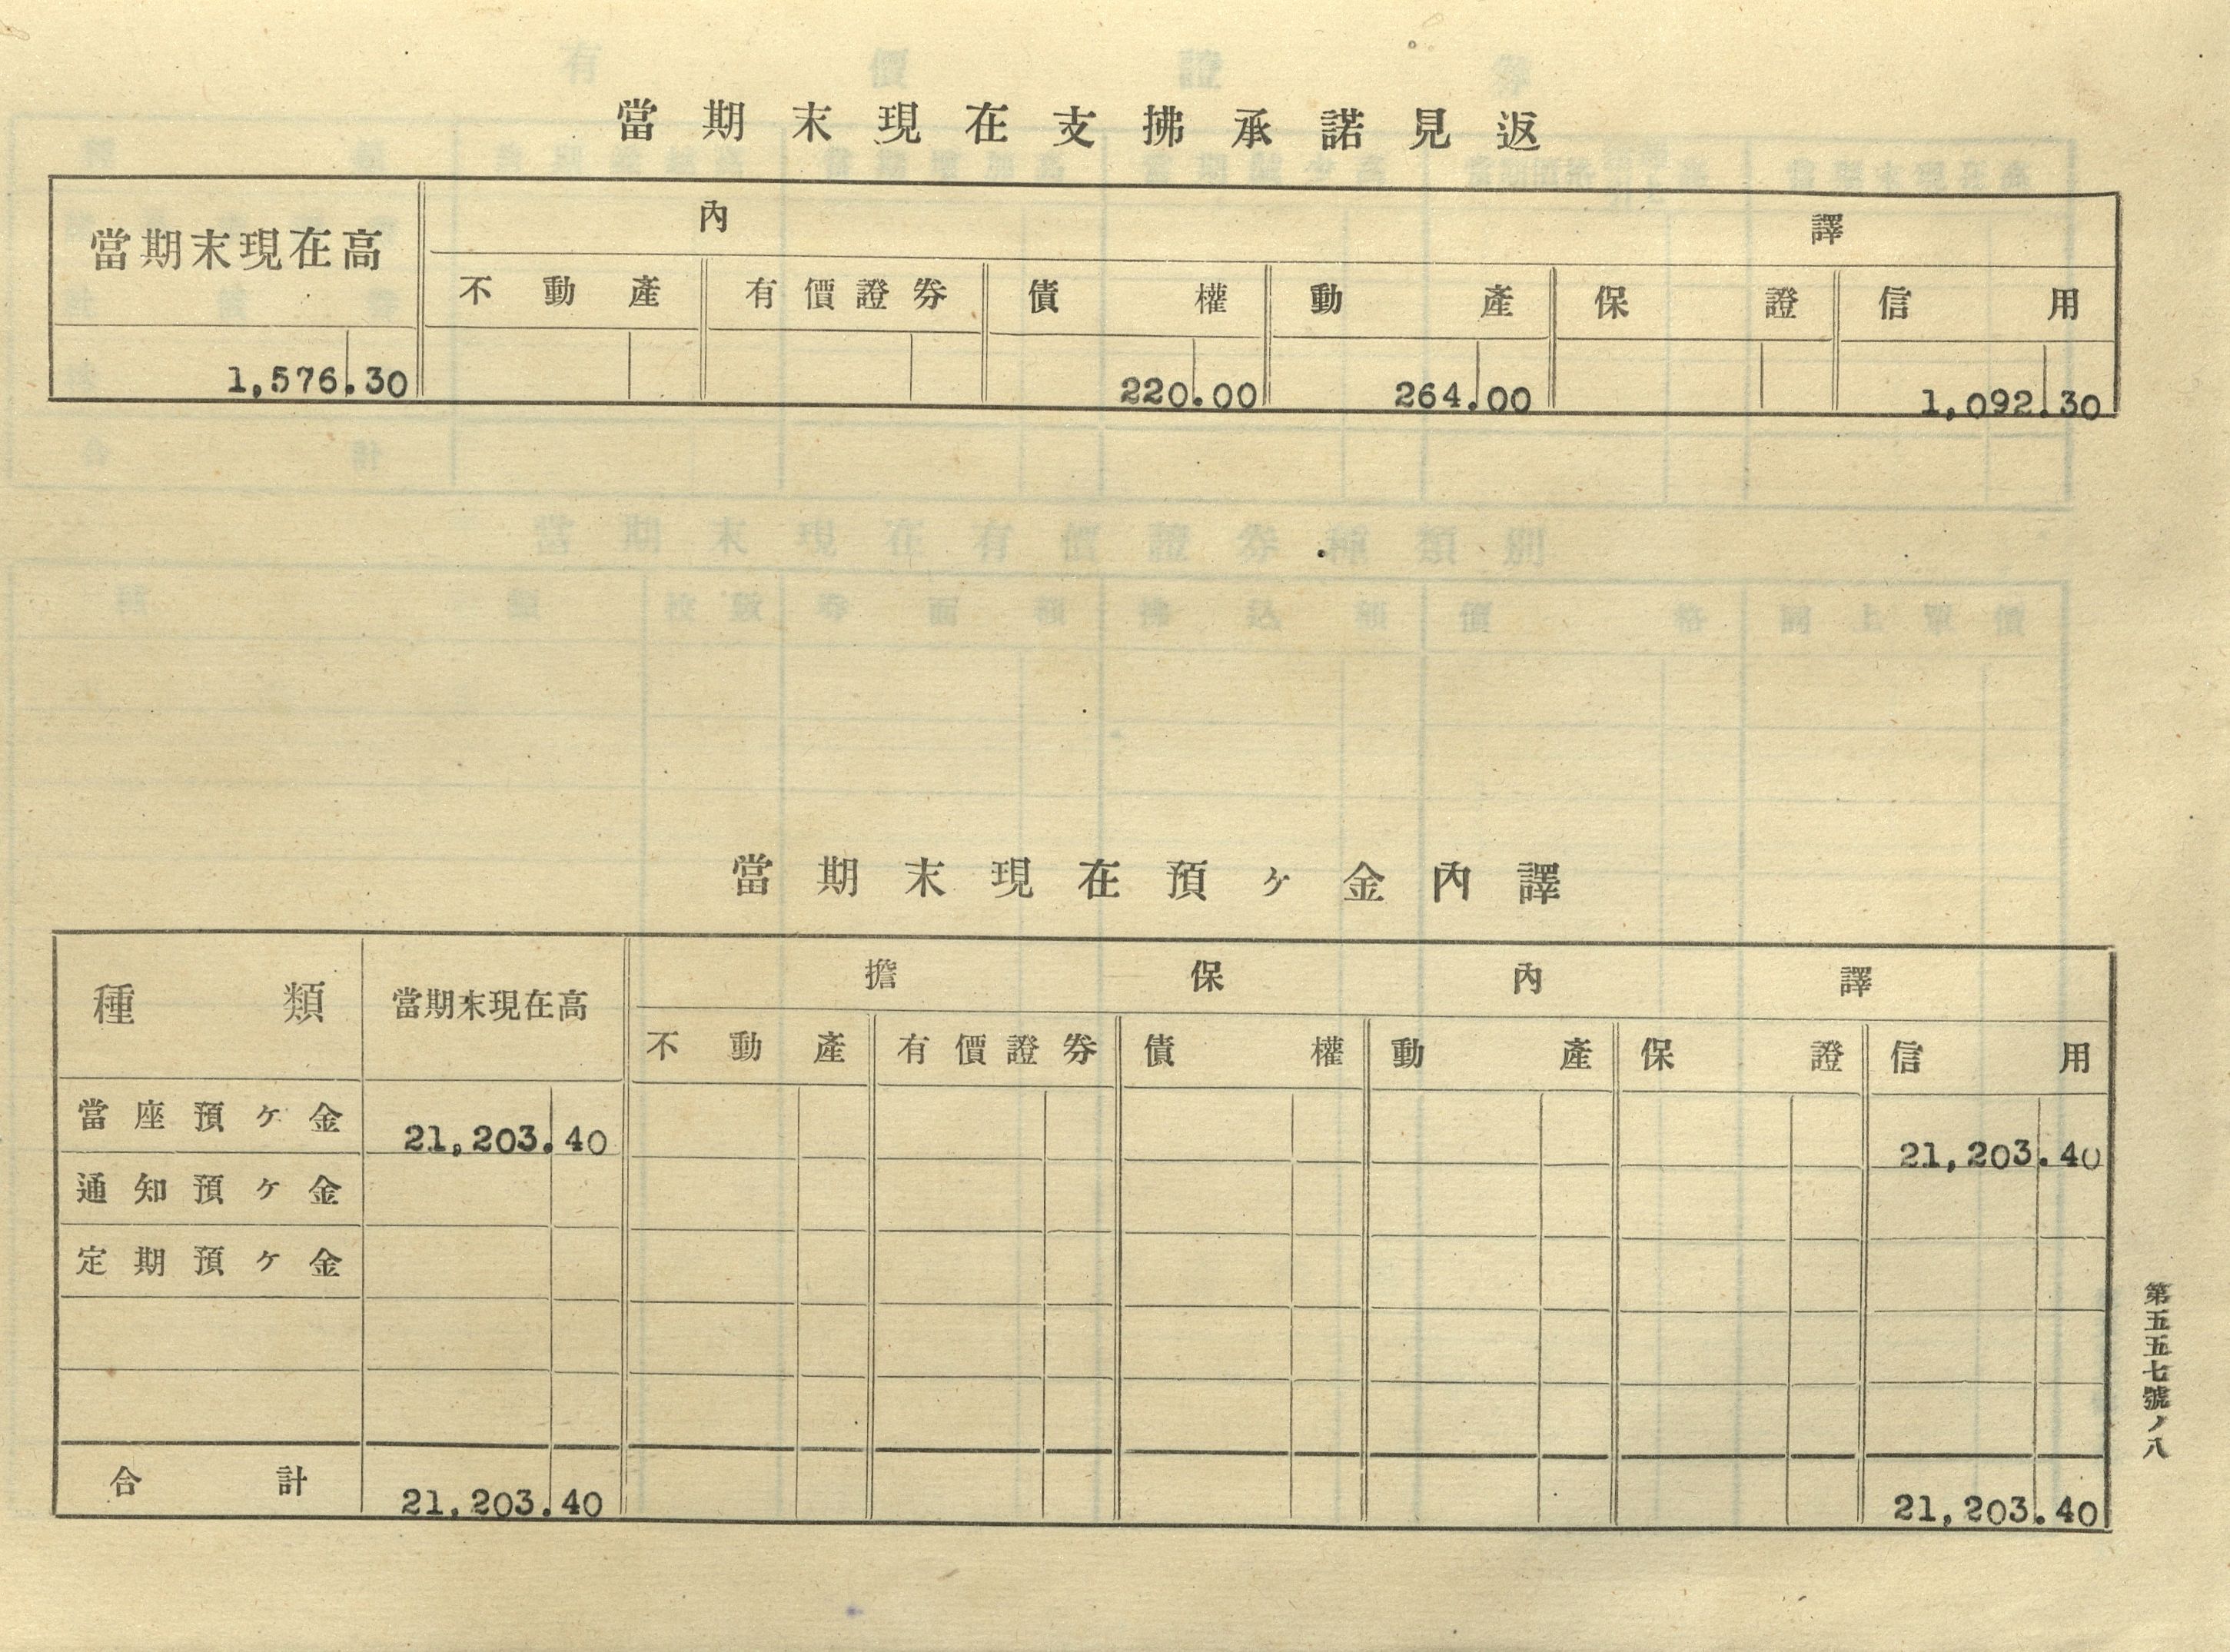 當期末現在支拂承諾見返
當期末現在高 內譯
不動產 有價證券 債權 動產 保證 信用
1,576.30 220.00 264.00 1,092.30
當期末現在預ヶ金內譯
種類 當期末現在高 擔保內譯
不動產 有價證券 債權 動產 保證 信用
當座預ヶ金 21,203.40 21,203.40
通知預ヶ金
定期預ヶ金
合計 21,203.40 21,203.40
第五五七號ノ八
有價證券
當期末現在有價證券種類別